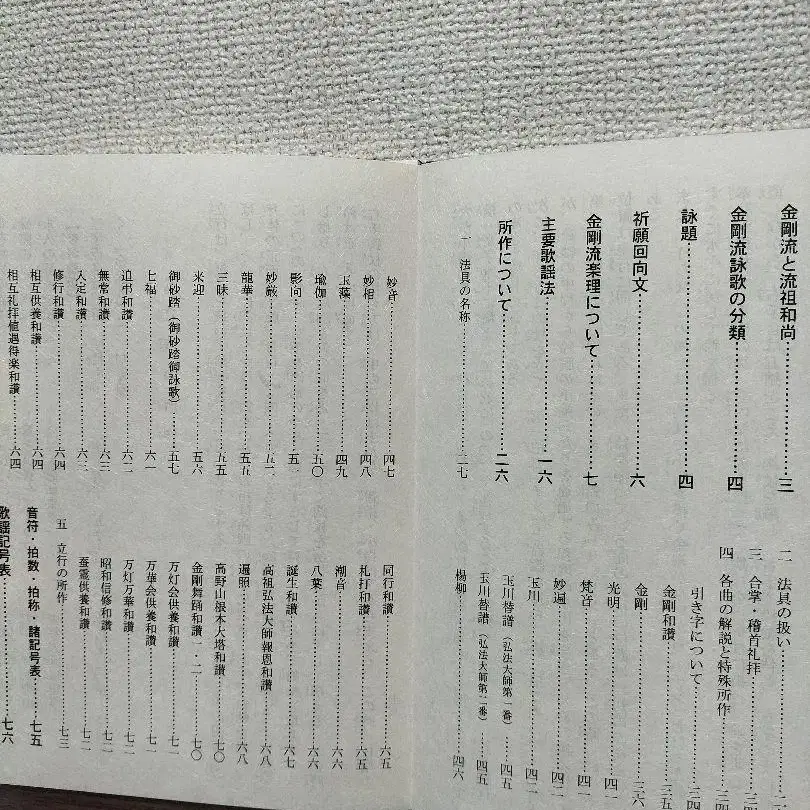 金剛流と流祖和尚……三
金剛流詠歌の分類……四
詠題……四
祈願回向文……六
金剛流楽理について……七
主要歌謡法……一六
所作について……二六
一 法具の名称……二七
二 法具の扱い
三 合掌・稽首礼拝
四 各曲の解説と特殊所作
引き字について……三四
金剛和讃……三五
金剛……三六
光明……四一
梵音……四一
妙遍……四二
玉川……四二
玉川替譜（弘法大師第一番）……四五
玉川替譜（弘法大師第二番）……四五
楊柳……四六
妙音……四七
妙相……四八
玉藻……四九
瑜伽……五〇
影向……五一
妙厳……五二
龍華……五五
三昧……五五
来迎……五六
御砂踏（御砂踏御詠歌）……五七
七福……六一
追弔和讃……六二
無常和讃……六三
入定和讃……六三
修行和讃……六四
相互供養和讃……六四
相互礼拝値遇得楽和讃……六四
同行和讃……六五
札打和讃……六五
潮音……六六
八葉……六六
誕生和讃……六七
高祖弘法大師報恩和讃……六八
遍照……六八
高野山根本大塔和讃……七〇
金剛舞踊和讃一・二……七〇
万灯会供養和讃……七一
万華会供養和讃……七一
万灯万華和讃……七二
昭和信修和讃……七二
蚕霊供養和讃……七二
五 立行の所作……七三
音符・拍数・拍称・諸記号表……七五
歌謡記号表……七六